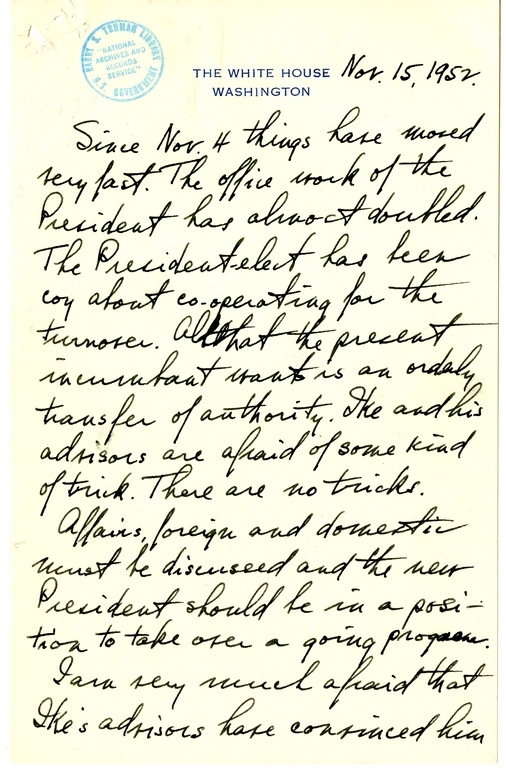 HARRY S. TRUMAN LIBRARY
"NATIONAL
ARCHIVES AND
RECORDS
SERVICE"
U.S. GOVERNMENT
THE WHITE HOUSE
WASHINGTON
Nov. 15, 1952.
Since Nov. 4 things have moved
very fast. The office work of the
President has almost doubled.
The President-elect has been
coy about co-operating for the
turnover. All that the present
incumbant wants is an ordely
transfer of authority. Ike and his
advisors are afraid of some kind
of trick. There are no tricks.
Affairs, foreign and domestic
must be discussed and the new
President should be in a posi-
tion to take over a going program.
I am very much afraid that
Ike's advisors have convinced him